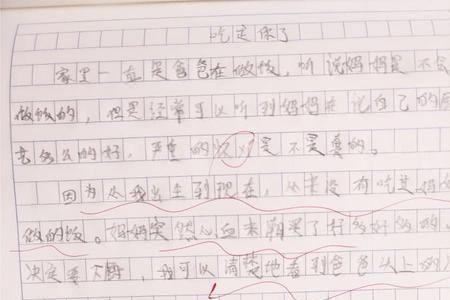 吃定你了
家里一直是爸爸在做饭，听说妈妈是不会
做饭的，但是经常可以听到妈妈在说自己的厨
艺怎么的好，严重的怀疑是不是真的。
因为从我出生到现在，从来没有吃过妈妈
做的饭。妈妈突然心血来潮买了好多好多的
决定要下厨，我可以清楚地看到爸爸以上的